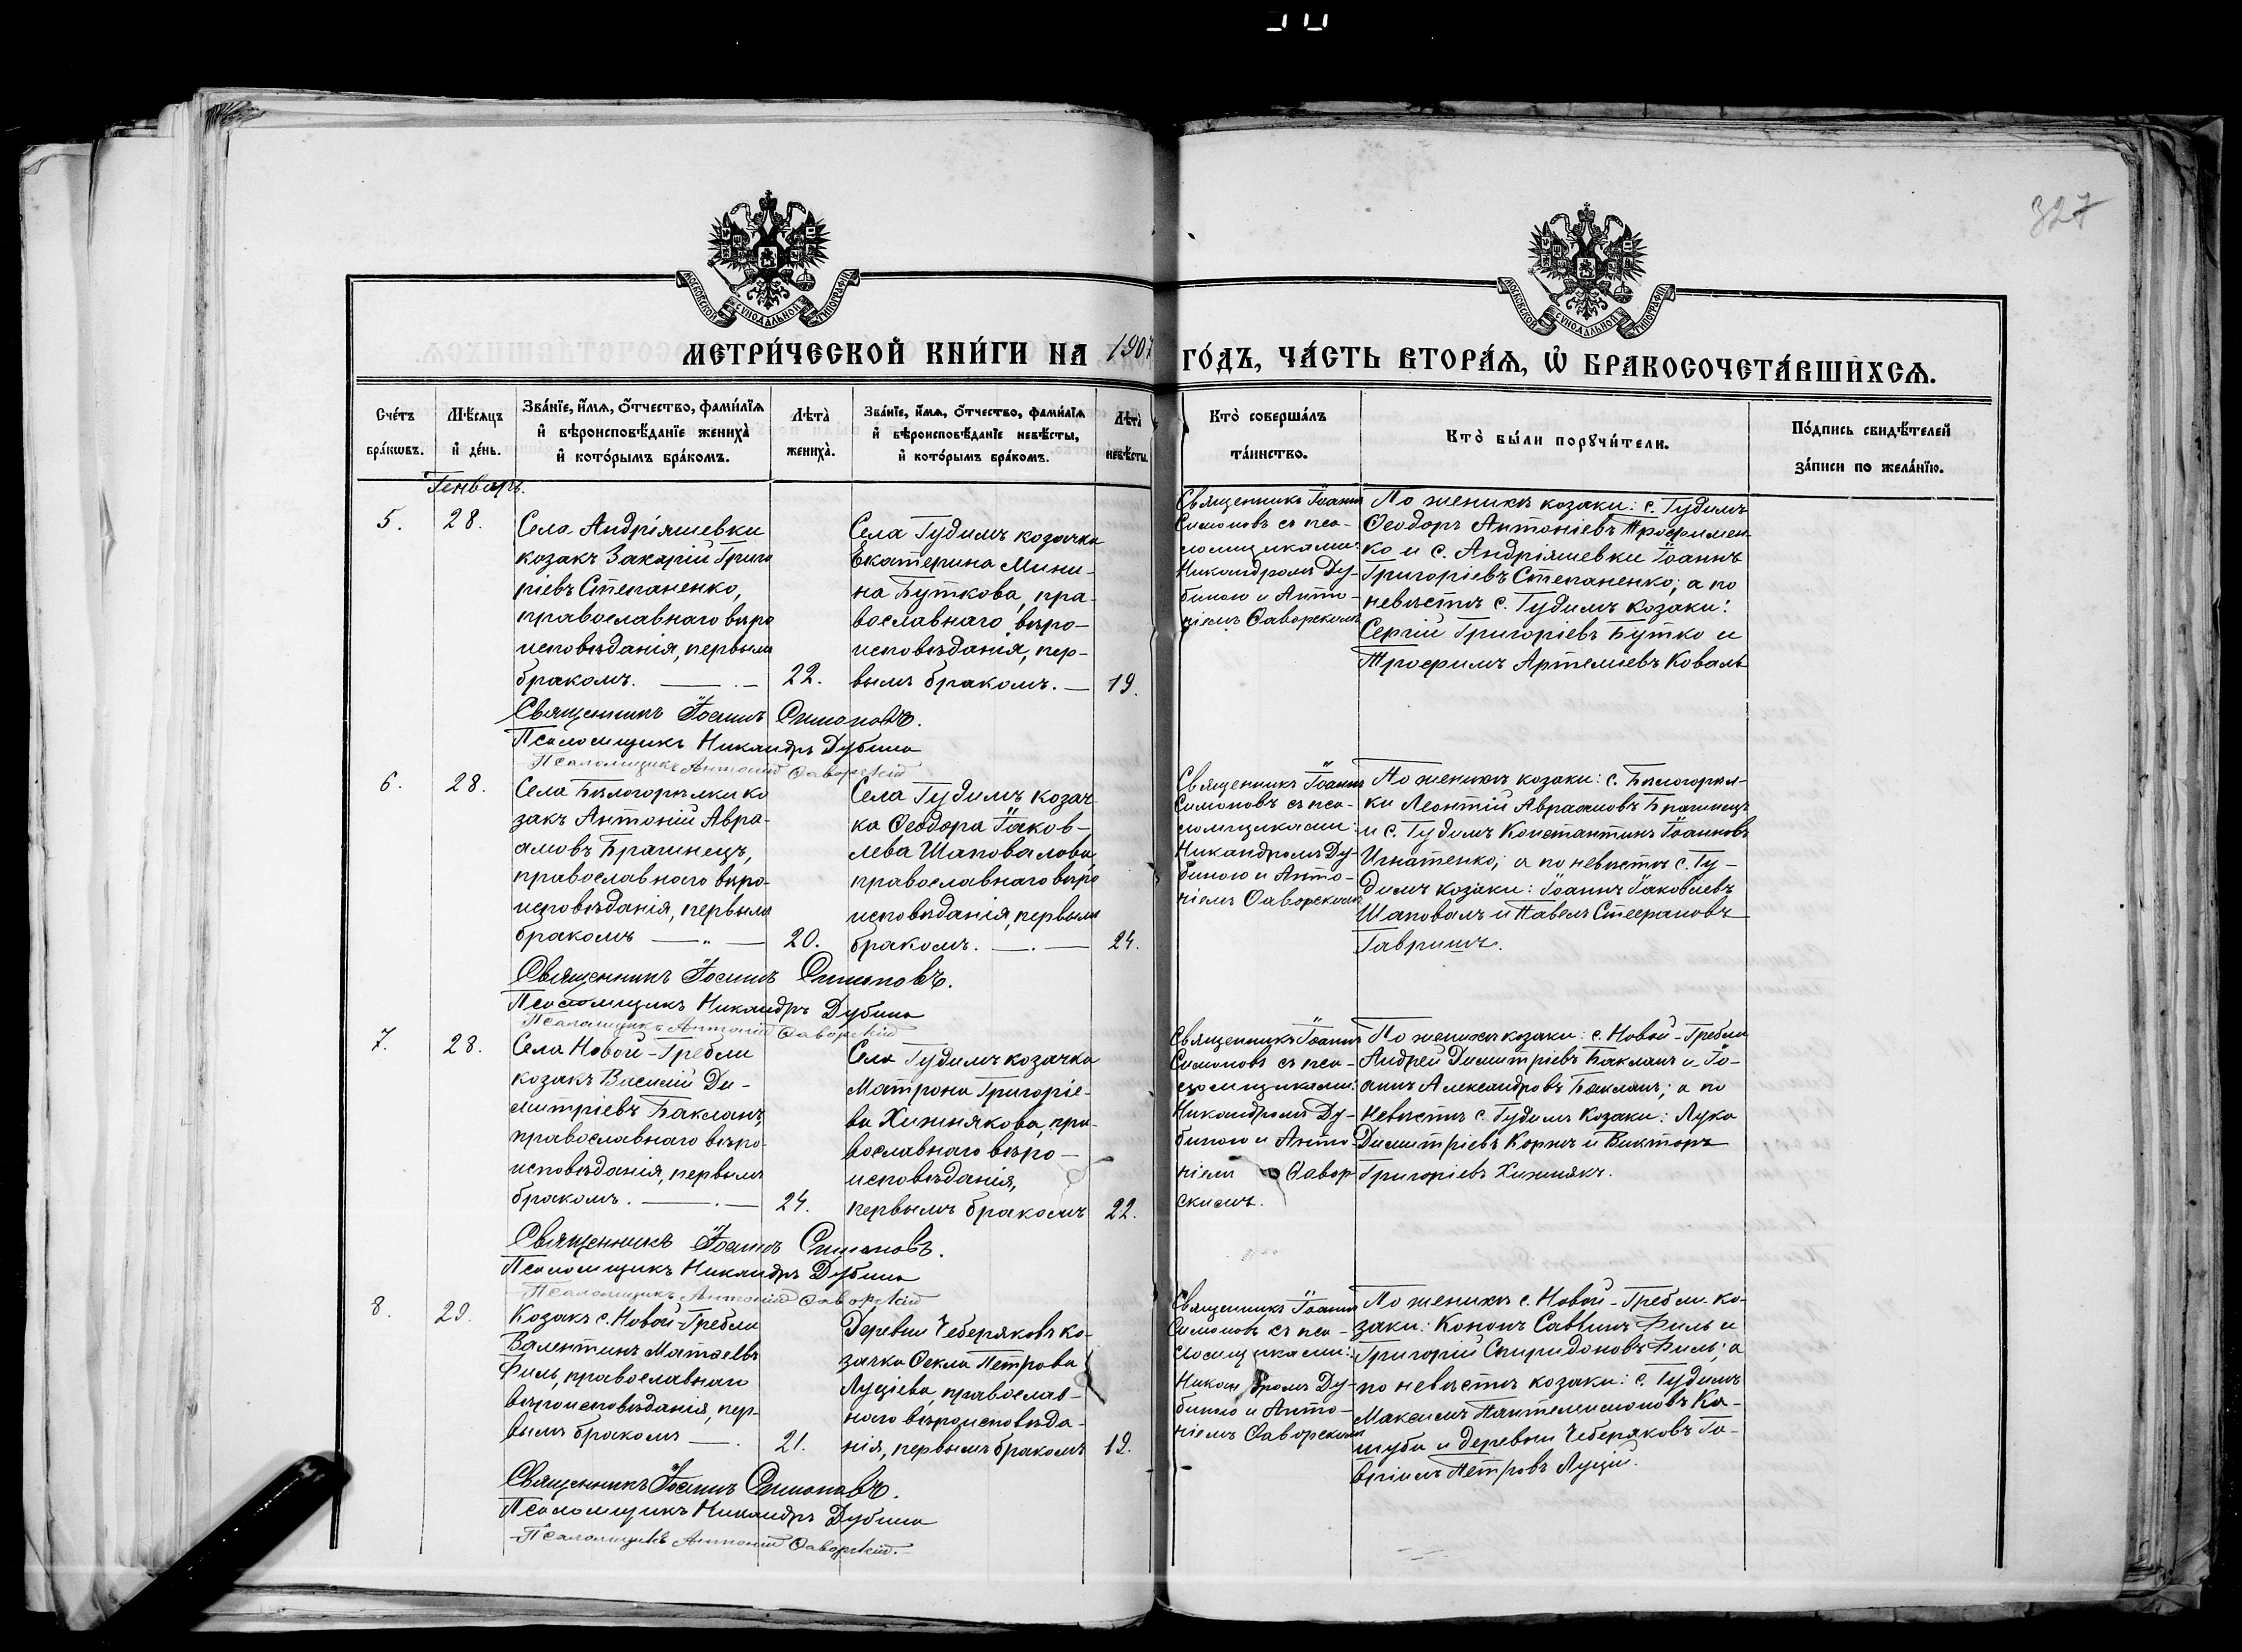 327
МОСКОВСКОЙ СѴНОДАЛЬНОЙ ТИПОГРАФІИ
МОСКОВСКОЙ СѴНОДАЛЬНОЙ ТИПОГРАФІИ
МЕТРИ́ЧЕСКОЙ КНИ́ГИ НА 1907 ГО́ДЪ, ЧА́СТЬ ВТОРА́Ѧ, Ѡ҆ БРАКОСОЧЕТА́ВШИХСѦ.
Сче́тъ бра́кѡвъ.
Мѣ́сѧцъ и҆ де́нь.
Зва́нїе, и҆́мѧ, ѻ҆́тчество, фами́лїѧ
и҆ вѣроисповѣ́данїе жениха̀
и҆ кото́рымъ бра́комъ.
Лѣта̀ жениха̀.
Зва́нїе, и҆́мѧ, ѻ҆́тчество, фами́лїѧ
и҆ вѣроисповѣ́данїе невѣ́сты,
и҆ кото́рымъ бра́комъ.
Лѣта̀ невѣ́сты.
Кто̀ соверша́лъ
та́инство.
Кто̀ бы́ли порꙋчи́тели.
По́дпись свидѣ́телей
за́писи по жела́нїю.
Генварь.
5.
28.
Села Андріяшевки
козакъ Захарій Григо
ріевъ Степаненко,
православнаго вѣро
исповѣданія, первымъ
бракомъ.
22.
Села Гудимъ козачка
Екатерина Мини-
на Буткова, пра-
вославнаго вѣро-
исповѣданія, пер-
вымъ бракомъ.
19.
Священникъ Іоаннъ
Симоновъ съ пса-
ломщиками:
Никандромъ Ду-
биною и Анто-
ніемъ Ѳаворскимъ
По женихѣ козаки: с. Гудимъ
Ѳеодоръ Антоніевъ Трофимен-
ко и с. Андріяшевки Іоаннъ
Григоріевъ Степаненко; а по
невѣстѣ с. Гудимъ козаки:
Сергій Григоріевъ Бутко и
Трофимъ Артеміевъ Коваль
Священникъ Іоаннъ Симоновъ.
Псаломщикъ Никандръ Дубина
Псаломщикъ Антоній Ѳаворскій
6.
28.
Села Бѣлогорѣлки ко
закъ Антоній Авра-
амовъ Брагинецъ,
православнаго вѣро-
исповѣданія, первымъ
бракомъ
20.
Села Гудимъ козач
ка Ѳеодора Іаков-
лева Шаповалова
православнаго вѣро
исповѣданія, первымъ
бракомъ.
24.
Священникъ Іоаннъ
Симоновъ съ пса-
ломщиками:
Никандромъ Ду-
биною и Анто-
ніемъ Ѳаворскимъ
По женихѣ козаки: с. Бѣлогорѣл-
ки Леонтій Авраамовъ Брагинецъ
и с. Гудимъ Константинъ Іоанновъ
Игнатенко; а по невѣстѣ с. Гу-
димъ козаки: Іоаннъ Іаковлевъ
Шаповалъ и Павелъ Стефановъ
Гавришъ.
Священникъ Іоаннъ Симоновъ.
Псаломщикъ Никандръ Дубина
Псаломщикъ Антоній Ѳаворскій
7.
28.
Села Новой-Гребли
козакъ Василій Ди-
митріевъ Бакланъ,
православнаго вѣро-
исповѣданія, первымъ
бракомъ.
24.
Села Гудимъ козачка
Матрона Григоріе-
ва Хижнякова, пра-
вославнаго вѣро-
исповѣданія,
первымъ бракомъ
22.
Священникъ Іоаннъ
Симоновъ съ пса-
ломщиками:
Никандромъ Ду-
биною и Анто-
ніемъ Ѳавор-
скимъ.
По женихѣ козаки: с. Новой-Гребли
Андрей Димитріевъ Бакланъ и Іо-
аннъ Александровъ Бакланъ; а по
невѣстѣ с. Гудимъ козаки: Лука
Димитріевъ Коржъ и Викторъ
Григоріевъ Хижнякъ.
Священникъ Іоаннъ Симоновъ.
Псаломщикъ Никандръ Дубина
Псаломщикъ Антоній Ѳаворскій
8.
29.
Козакъ с. Новой-Гребли
Валентинъ Матѳеевъ
Филь, православнаго
вѣроисповѣданія, пер-
вымъ бракомъ
21.
Деревни Чеберяковъ ко-
зачка Ѳекла Петрова
Луціева, православ-
наго вѣроисповѣда-
нія, первымъ бракомъ
19.
Священникъ Іоаннъ
Симоновъ съ пса-
ломщиками:
Никандромъ Ду-
биною и Анто-
ніемъ Ѳаворскимъ
По женихѣ с. Новой-Гребли ко-
заки: Кононъ Саввинъ Филь и
Григорій Спиридоновъ Филь; а
по невѣстѣ козаки: с. Гудимъ
Максимъ Пантелеимоновъ Ка-
шуба и деревни Чеберяковъ Га-
вріилъ Петровъ Луцій.
Священникъ Іоаннъ Симоновъ.
Псаломщикъ Никандръ Дубина
Псаломщикъ Антоній Ѳаворскій.